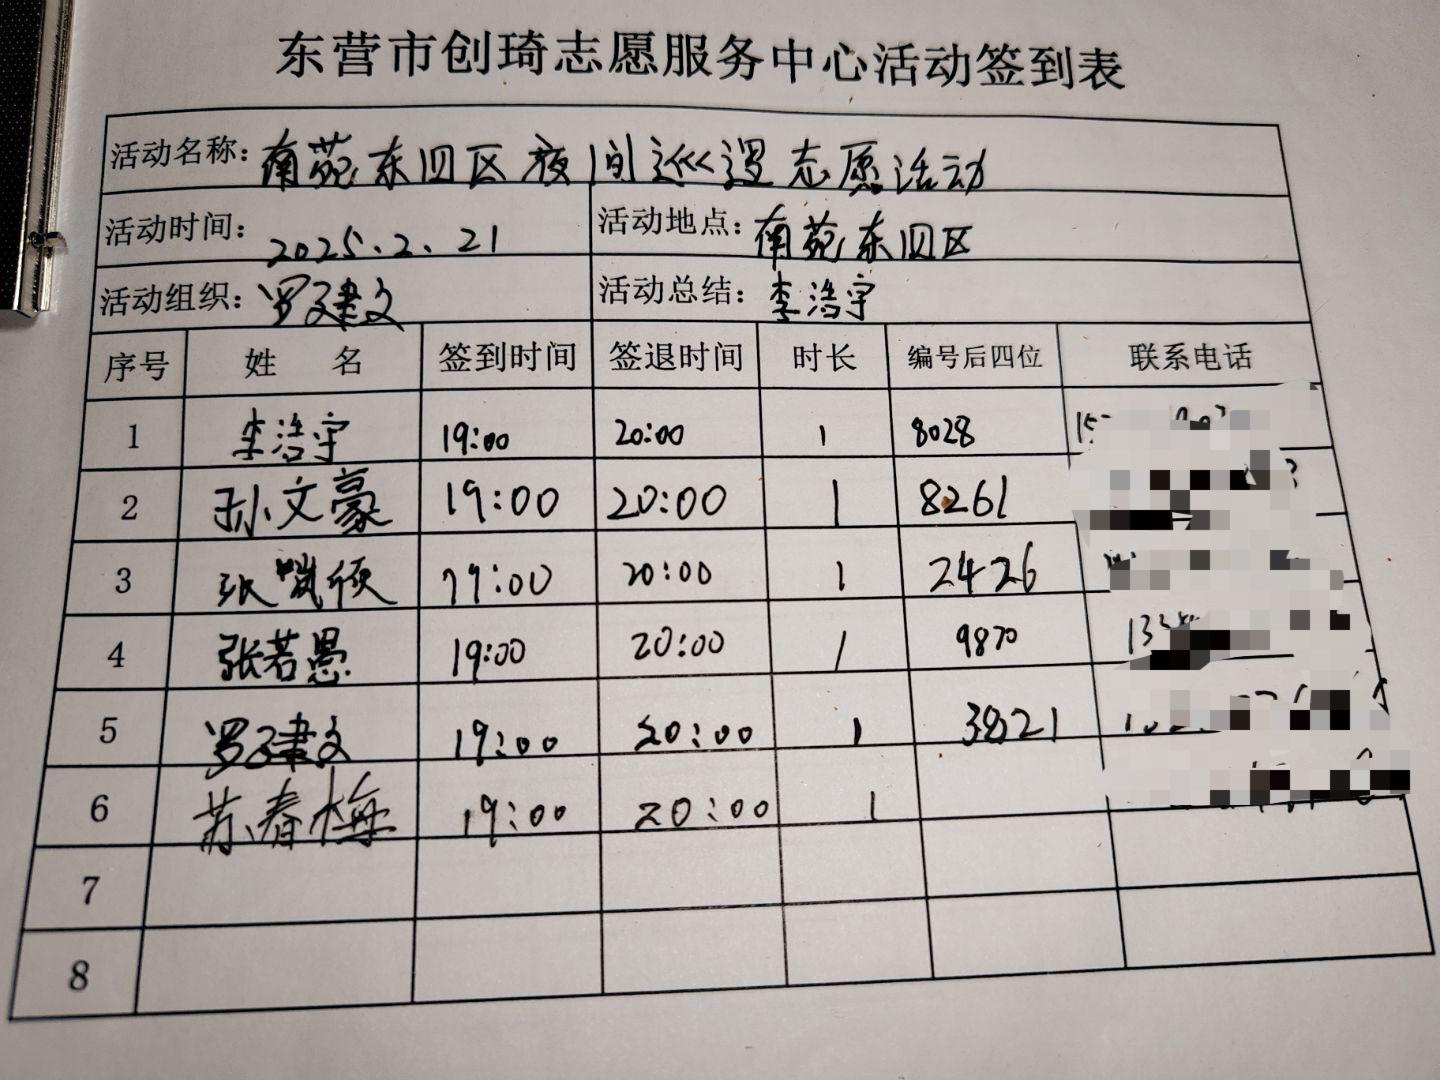 东营市创琦志愿服务中心活动签到表
活动名称：南苑东四区夜间巡逻志愿活动
活动时间：2025.2.21 活动地点：南苑东四区
活动组织：罗建文 活动总结：李浩宇
序号 姓 名 签到时间 签退时间 时长 编号后四位 联系电话
1 李浩宇 19:00 20:00 1 8028
2 孙文豪 19:00 20:00 1 8261
3 张 19:00 20:00 1 2426
4 张若愚 19:00 20:00 1 9870
5 罗建文 19:00 20:00 1 3821
6 苏春梅 19:00 20:00 1
7
8